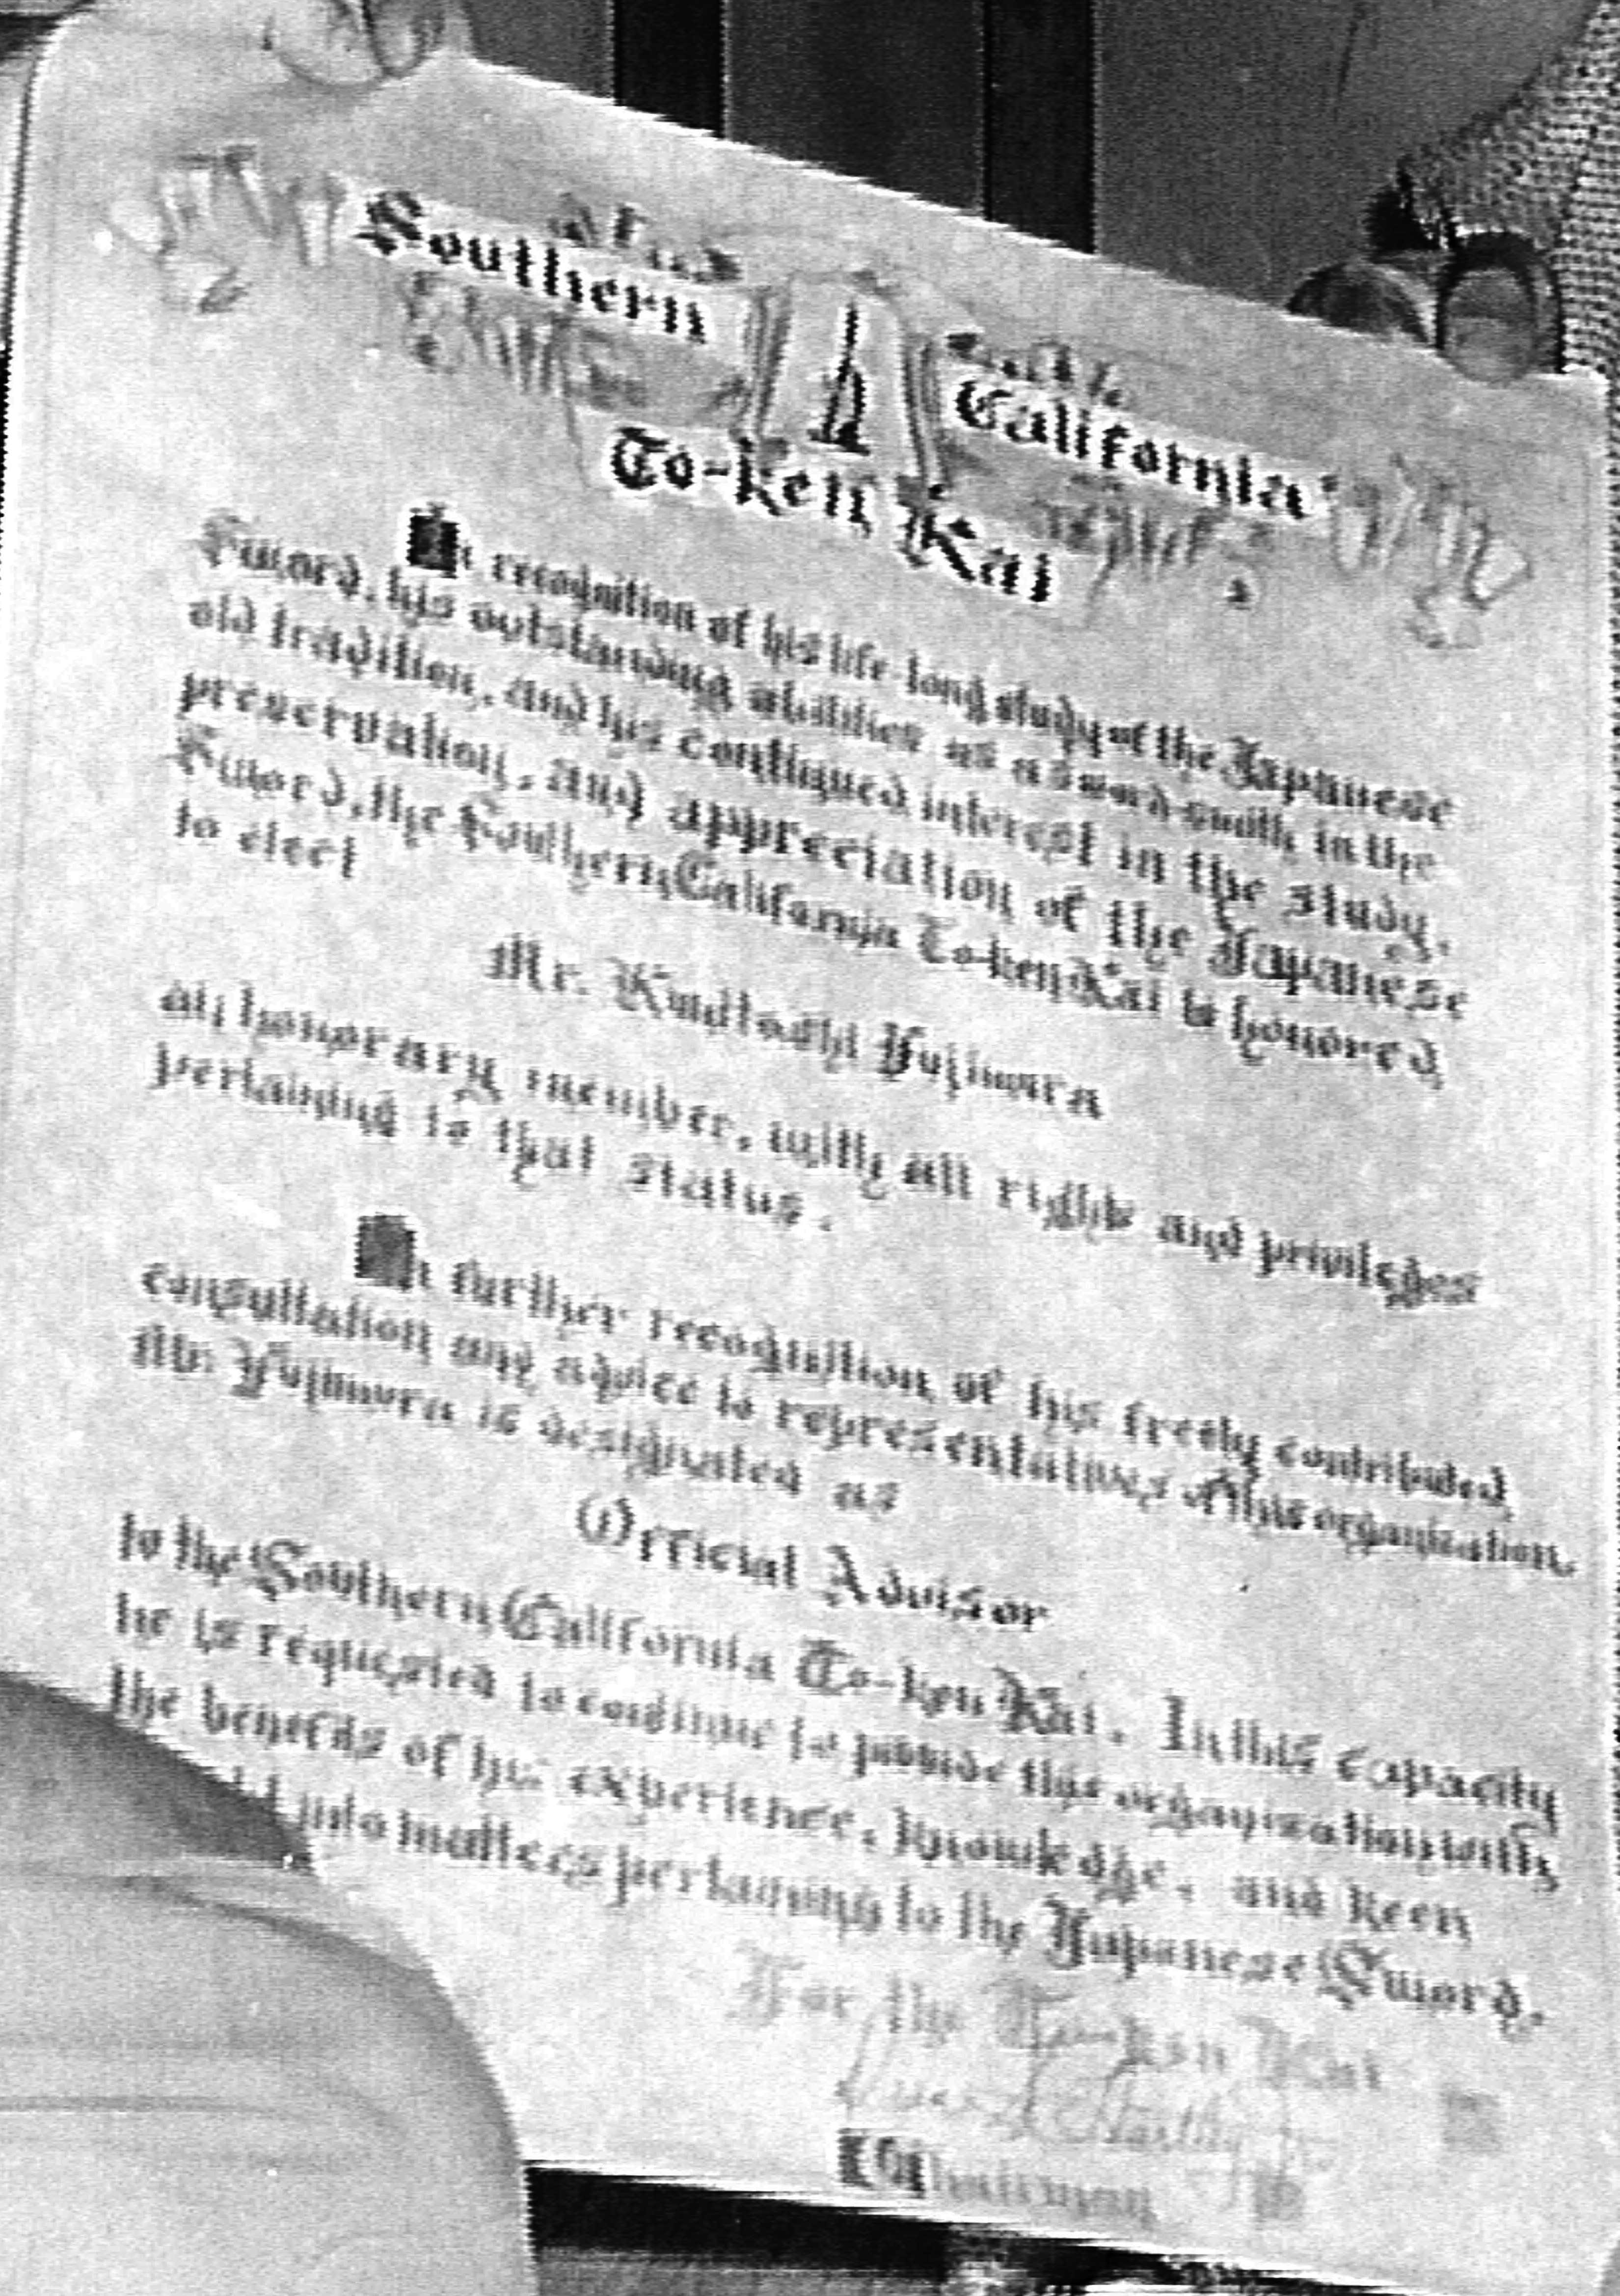 Southern California
To-ken Kai
In recognition of his life-long study of the Japanese
Sword, his outstanding abilities as a sword-smith in the
old tradition, and his continued interest in the study,
preservation, and appreciation of the Japanese
Sword, the Southern California To-ken Kai is honored
to elect
Mr.
an honorary member, with all rights and privileges
pertaining to that status.
In further recognition of his freely contributed
consultation and advice to representatives of this organization,
Mr. is designated as
Official Advisor
to the Southern California To-ken Kai. In this capacity
he is requested to continue to provide this organization with
the benefits of his experience, knowledge, and keen
into matters pertaining to the Japanese Sword.
For the To-ken Kai
Chairman